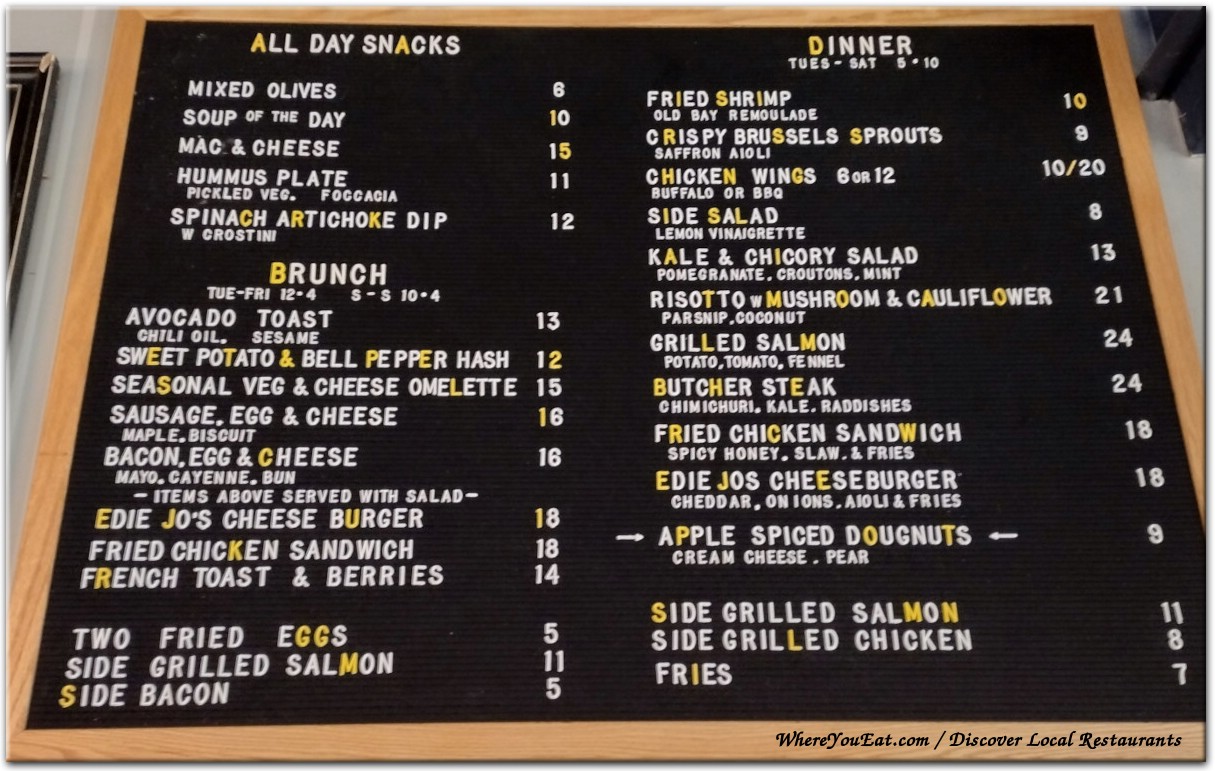 ALL DAY SNACKS
MIXED OLIVES 6
SOUP OF THE DAY 10
MAC & CHEESE 15
HUMMUS PLATE 11
PICKLED VEG. FOGGAGIA
SPINACH ARTICHOKE DIP 12
W GROSTINI
BRUNCH
TUE-FRI 12-4 S-S 10-4
AVOCADO TOAST 13
CHILI OIL, SESAME
SWEET POTATO & BELL PEPPER HASH 12
SEASONAL VEG & CHEESE OMELETTE 15
SAUSAGE, EGG & CHEESE 16
MAPLE, BISCUIT
BACON, EGG & CHEESE 16
MAYO, CAYENNE, BUN
- ITEMS ABOVE SERVED WITH SALAD -
EDIE JO'S CHEESE BURGER 18
FRIED CHICKEN SANDWICH 18
FRENCH TOAST & BERRIES 14
TWO FRIED EGGS 5
SIDE GRILLED SALMON 11
SIDE BACON 5
DINNER
TUES- SAT 5-10
FRIED SHRIMP 10
OLD BAY REMOULADE
CRISPY BRUSSELS SPROUTS 9
SAFFRON AIOLI
CHICKEN WINGS 6 OR 12 10/20
BUFFALO OR BBQ
SIDE SALAD 8
LEMON VINAIGRETTE
KALE & CHICORY SALAD 13
POMEGRANATE, CROUTONS, MINT
RISOTTO W MUSHROOM & CAULIFLOWER 21
PARSNIP, COCONUT
GRILLED SALMON 24
POTATO, TOMATO, FENNEL
BUTCHER STEAK 24
CHIMICHURI, KALE, RADDISHES
FRIED CHICKEN SANDWICH 18
SPICY HONEY, SLAW, & FRIES
EDIE JOS CHEESEBURGER 18
CHEDDAR, ONIONS, AIOLI & FRIES
→ APPLE SPICED DOUGNUTS ← 9
CREAM CHEESE, PEAR
SIDE GRILLED SALMON 11
SIDE GRILLED CHICKEN 8
FRIES 7
WhereYouEat.com / Discover Local Restaurants